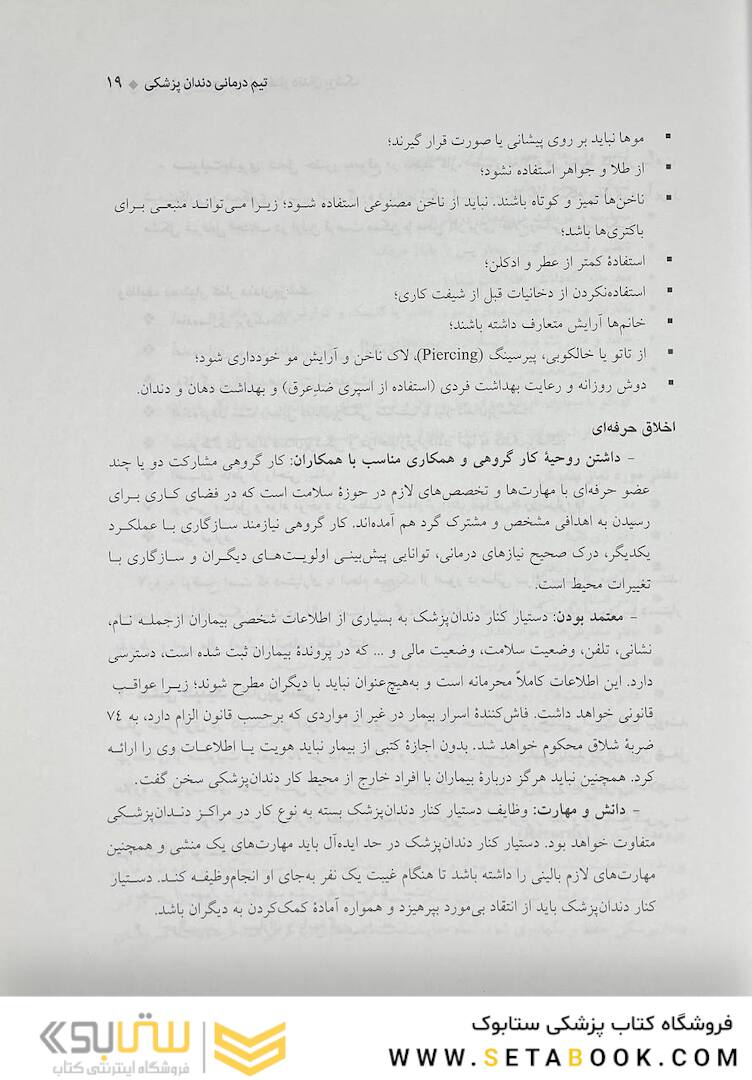 تیم درمانی دندان پزشکی ◆ ۱۹
▪ موها نباید بر روی پیشانی یا صورت قرار گیرند؛
▪ از طلا و جواهر استفاده نشود؛
▪ ناخن‌ها تمیز و کوتاه باشند. نباید از ناخن مصنوعی استفاده شود؛ زیرا می‌تواند منبعی برای
باکتری‌ها باشد؛
▪ استفادهٔ کمتر از عطر و ادکلن؛
▪ استفاده‌نکردن از دخانیات قبل از شیفت کاری؛
▪ خانم‌ها آرایش متعارف داشته باشند؛
▪ از تاتو یا خالکوبی، پیرسینگ (Piercing)، لاک ناخن و آرایش مو خودداری شود؛
▪ دوش روزانه و رعایت بهداشت فردی (استفاده از اسپری ضدِعرق) و بهداشت دهان و دندان.
اخلاق حرفه‌ای
- داشتن روحیهٔ کار گروهی و همکاری مناسب با همکاران: کار گروهی مشارکت دو یا چند
عضو حرفه‌ای با مهارت‌ها و تخصص‌های لازم در حوزهٔ سلامت است که در فضای کاری برای
رسیدن به اهدافی مشخص و مشترک گرد هم آمده‌اند. کار گروهی نیازمند سازگاری با عملکرد
یکدیگر، درک صحیح نیازهای درمانی، توانایی پیش‌بینی اولویت‌های دیگران و سازگاری با
تغییرات محیط است.
- معتمد بودن: دستیار کنار دندان‌پزشک به بسیاری از اطلاعات شخصی بیماران ازجمله نام،
نشانی، تلفن، وضعیت سلامت، وضعیت مالی و ... که در پروندهٔ بیماران ثبت شده است، دسترسی
دارد. این اطلاعات کاملاً محرمانه است و به‌هیچ‌عنوان نباید با دیگران مطرح شوند؛ زیرا عواقب
قانونی خواهد داشت. فاش‌کنندهٔ اسرار بیمار در غیر از مواردی که برحسب قانون الزام دارد، به ۷۴
ضربهٔ شلاق محکوم خواهد شد. بدون اجازهٔ کتبی از بیمار نباید هویت یا اطلاعات وی را ارائه
کرد. همچنین نباید هرگز دربارهٔ بیماران با افراد خارج از محیط کار دندان‌پزشکی سخن گفت.
- دانش و مهارت: وظایف دستیار کنار دندان‌پزشک بسته به نوع کار در مراکز دندان‌پزشکی
متفاوت خواهد بود. دستیار کنار دندان‌پزشک در حد ایده‌آل باید مهارت‌های یک منشی و همچنین
مهارت‌های لازم بالینی را داشته باشد تا هنگام غیبت یک نفر به‌جای او انجام‌وظیفه کند. دستیار
کنار دندان‌پزشک باید از انتقاد بی‌مورد بپرهیزد و همواره آمادهٔ کمک‌کردن به دیگران باشد.
فروشگاه کتاب پزشکی ستابوک
WWW.SETABOOK.COM
ستابوک
فروشگاه اینترنتی کتاب